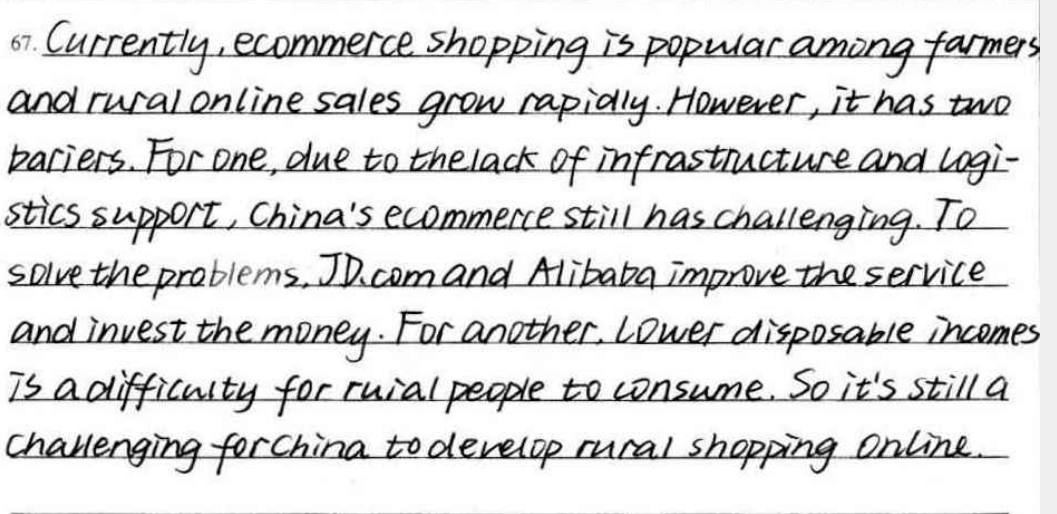 67. Currently, ecommerce shopping is popular among farmers
and rural online sales grow rapidly. However, it has two
bariers. For one, due to the lack of infrastructure and logi-
stics support, China's ecommerce still has challenging. To
solve the problems, JD.com and Alibaba improve the service
and invest the money. For another, Lower disposable incomes
is a difficulty for rural people to consume. So it's still a
challenging for China to develop rural shopping online.